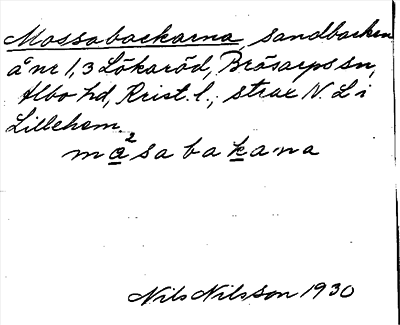 Mossabackarna, sandbacken
å nr 1,3 Lökaröd, Brösarps sn,
Albo hd, Krist. l., strax N. L i
Lillehem.
2
masabakana
Nils Nilsson 1930